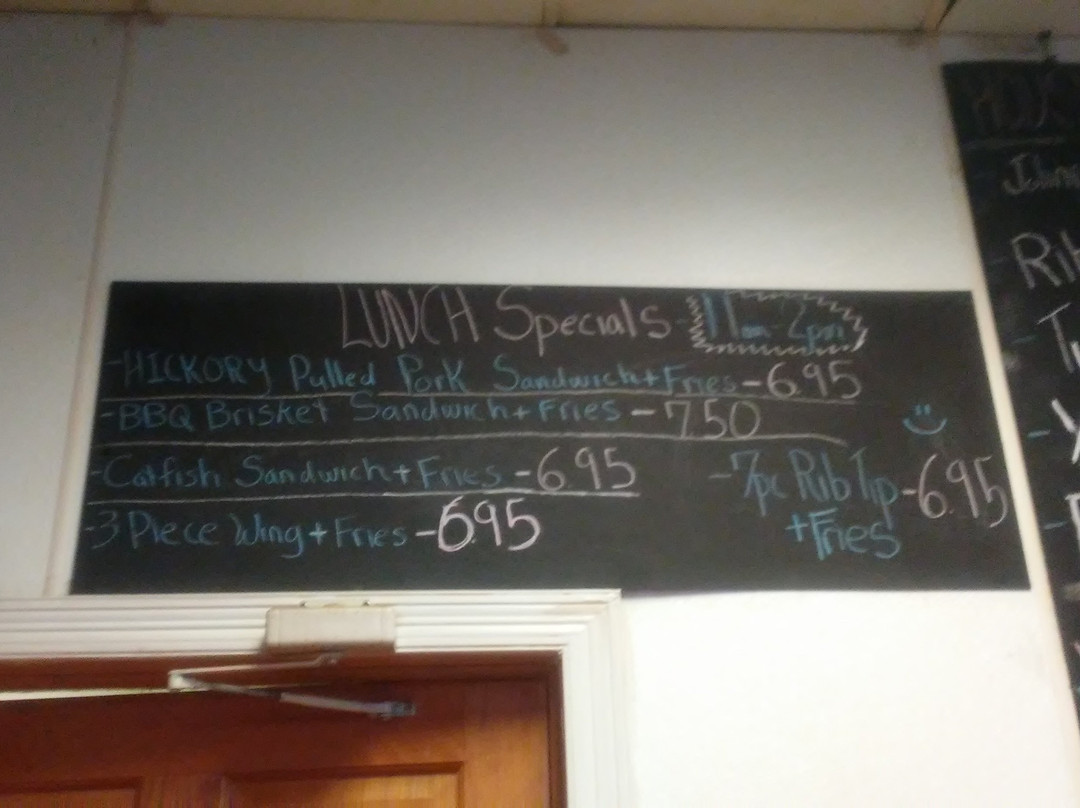 LUNCH Specials - 11am-2pm
-HICKORY Pulled Pork Sandwich+Fries-6.95
-BBQ Brisket Sandwich+Fries-7.50
-Catfish Sandwich+Fries-6.95
-3 Piece Wing+Fries-6.95
-7pc Rib Tip-6.95
+Fries